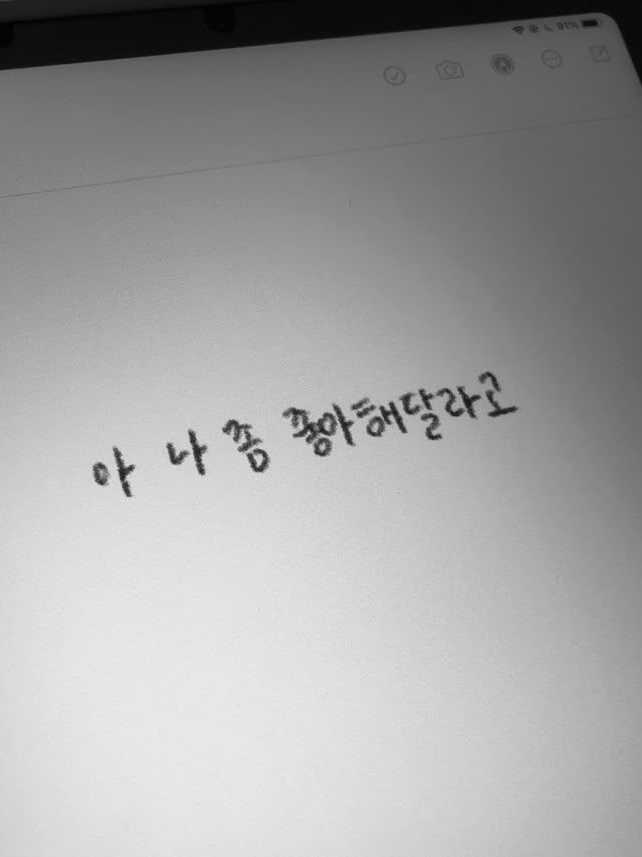 91%
아 나 좀 좋아해달라고